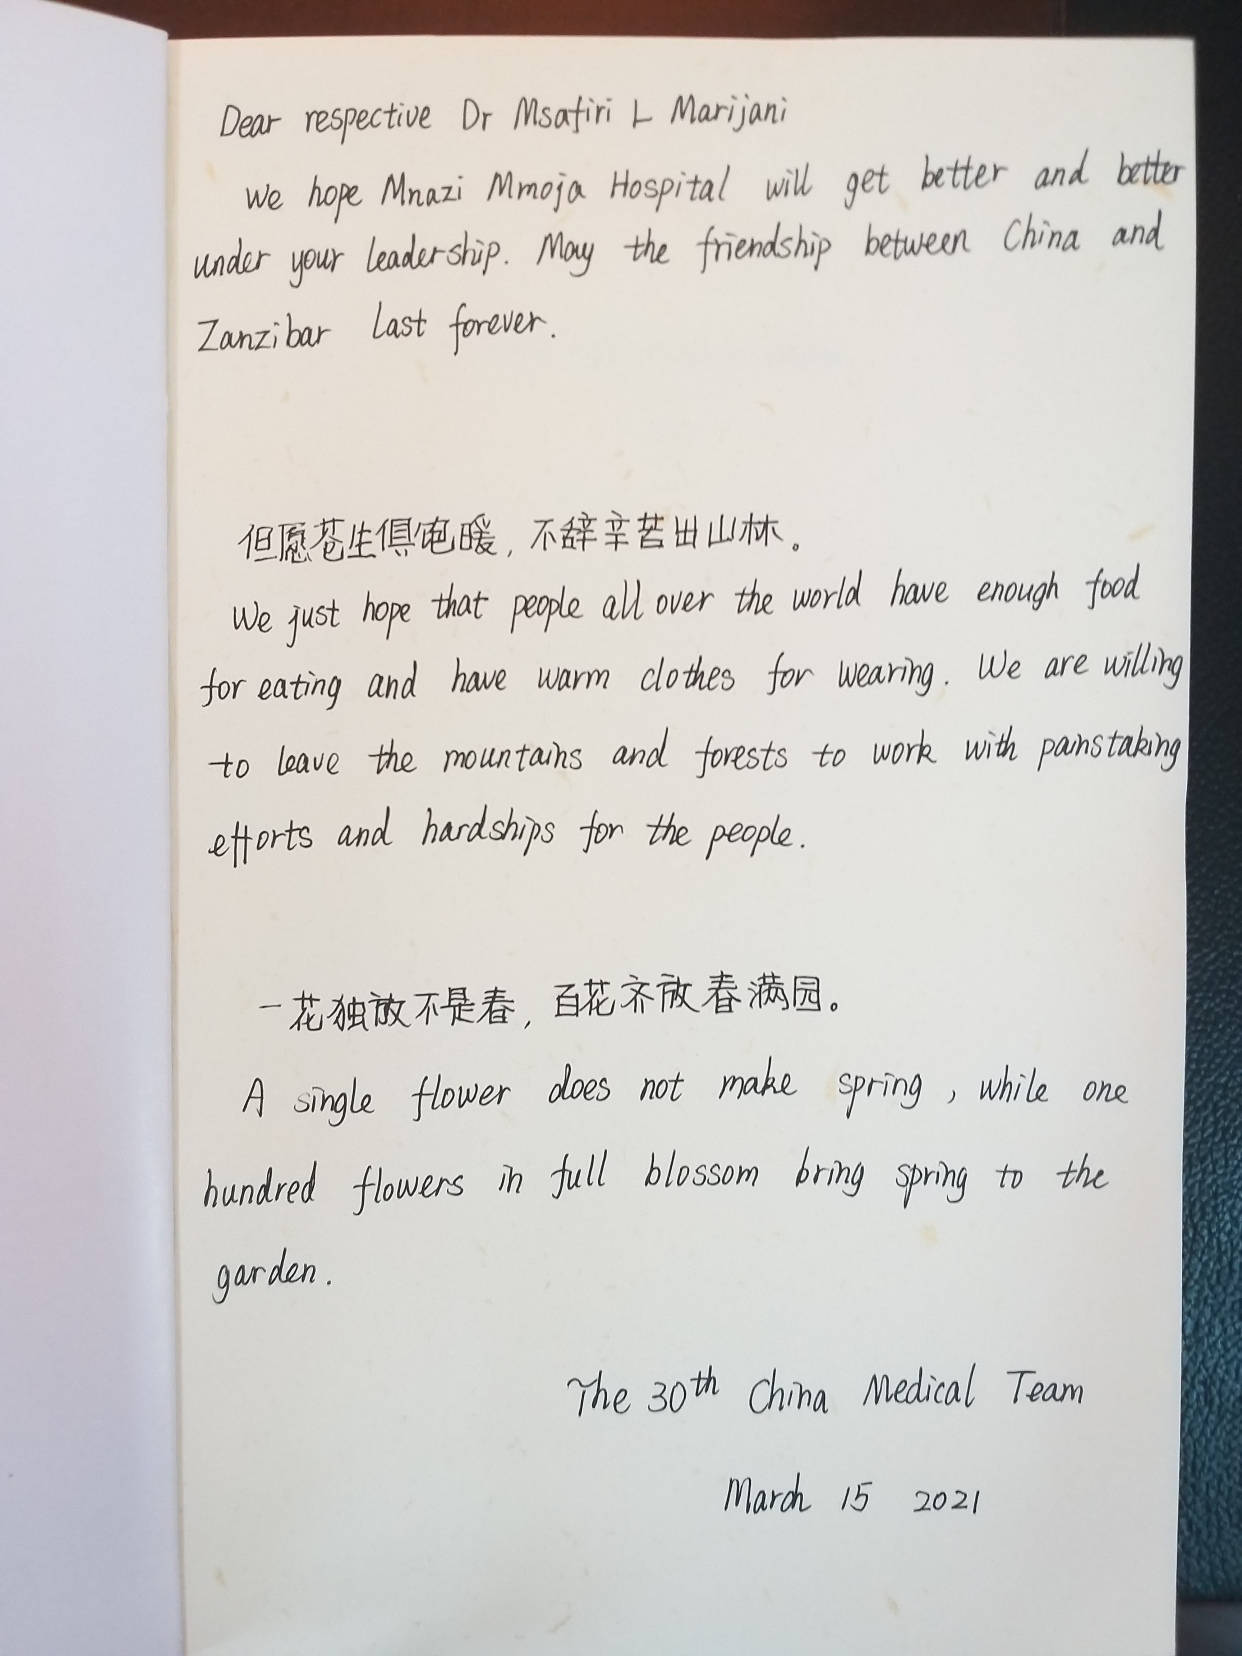 Dear respective Dr Msafiri L Marijani
We hope Mnazi Mmoja Hospital will get better and better
under your leadership. May the friendship between China and
Zanzibar last forever.
但愿苍生俱饱暖,不辞辛苦出山林。
We just hope that people all over the world have enough food
for eating and have warm clothes for wearing. We are willing
to leave the mountains and forests to work with painstaking
efforts and hardships for the people.
一花独放不是春,百花齐放春满园。
A single flower does not make spring, while one
hundred flowers in full blossom bring spring to the
garden.
The 30th China Medical Team
March 15 2021